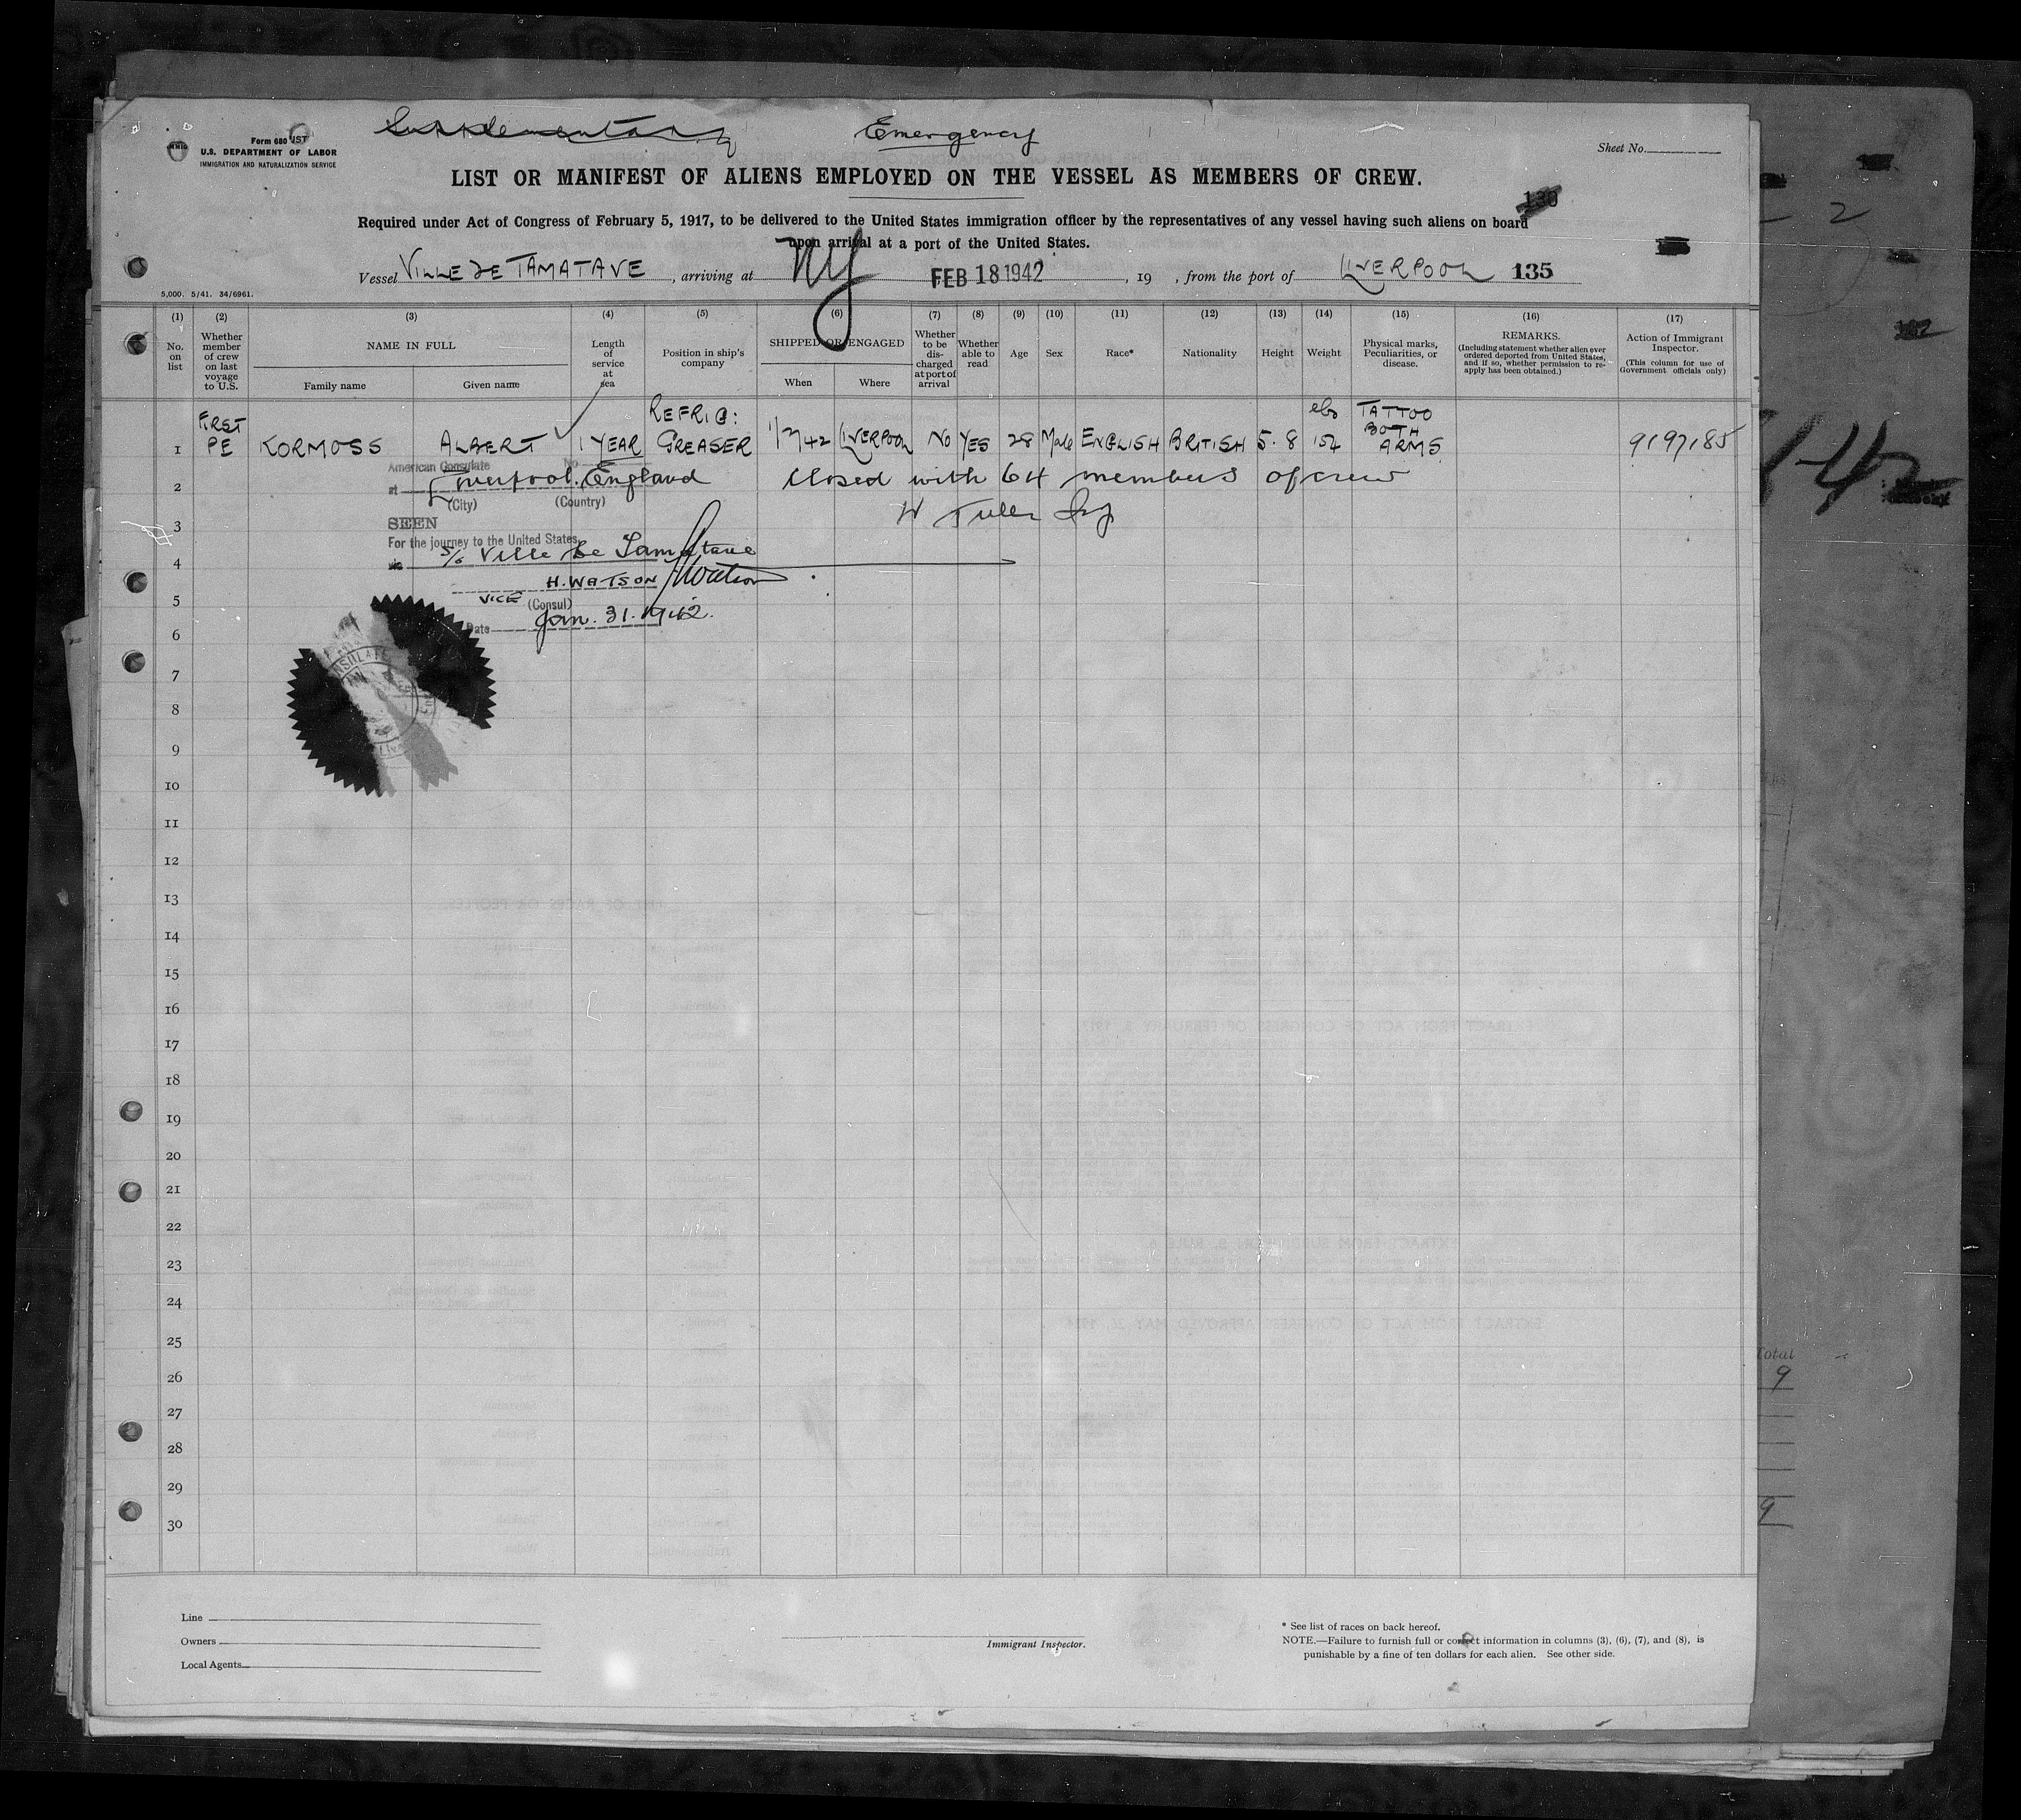 Supplementary Emergency
Form 680
U.S. DEPARTMENT OF LABOR
IMMIGRATION AND NATURALIZATION SERVICE
Sheet No.
LIST OR MANIFEST OF ALIENS EMPLOYED ON THE VESSEL AS MEMBERS OF CREW.
130
Required under Act of Congress of February 5, 1917, to be delivered to the United States immigration officer by the representatives of any vessel having such aliens on board
upon arrival at a port of the United States.
Vessel VILLE DE TAMATAVE, arriving at NY FEB 18 1942, 19 , from the port of LIVERPOOL 135
5,000. 5/41. 34/6961.
(1) (2) (3) (4) (5) (6) (7) (8) (9) (10) (11) (12) (13) (14) (15) (16) (17)
No. on list
Whether member of crew on last voyage to U.S.
NAME IN FULL
Family name
Given name
Length of service at sea
Position in ship's company
SHIPPED OR ENGAGED
When
Where
Whether to be discharged at port of arrival
Whether able to read
Age
Sex
Race*
Nationality
Height
Weight
Physical marks, Peculiarities, or disease.
REMARKS.
(Including statement whether alien ever ordered deported from United States, and if so, whether permission to re-apply has been obtained.)
Action of Immigrant Inspector.
(This column for use of Government officials only)
1 FIRST PE KORMOSS ALBERT 1 YEAR REFRIG: GREASER LIVERPOOL NO YES 28 Male ENGLISH BRITISH 5.8 154 TATTOO BOTH ARMS
American Consulate
2 at Liverpool. England Closed with 64 members of crew
(City) (Country)
3 SEEN W Fuller
For the journey to the United States
4 S/S Ville de Tamatave
H. WATSON HWatson
5 VICE (Consul)
Date Jan. 31. 1942.
6
7
8
9
10
11
12
13
14
15
16
17
18
19
20
21
22
23
24
25
26
27
28
29
30
Total
9
9
Line
Owners
Local Agents
Immigrant Inspector.
* See list of races on back hereof.
NOTE.—Failure to furnish full or correct information in columns (3), (6), (7), and (8), is
punishable by a fine of ten dollars for each alien. See other side.